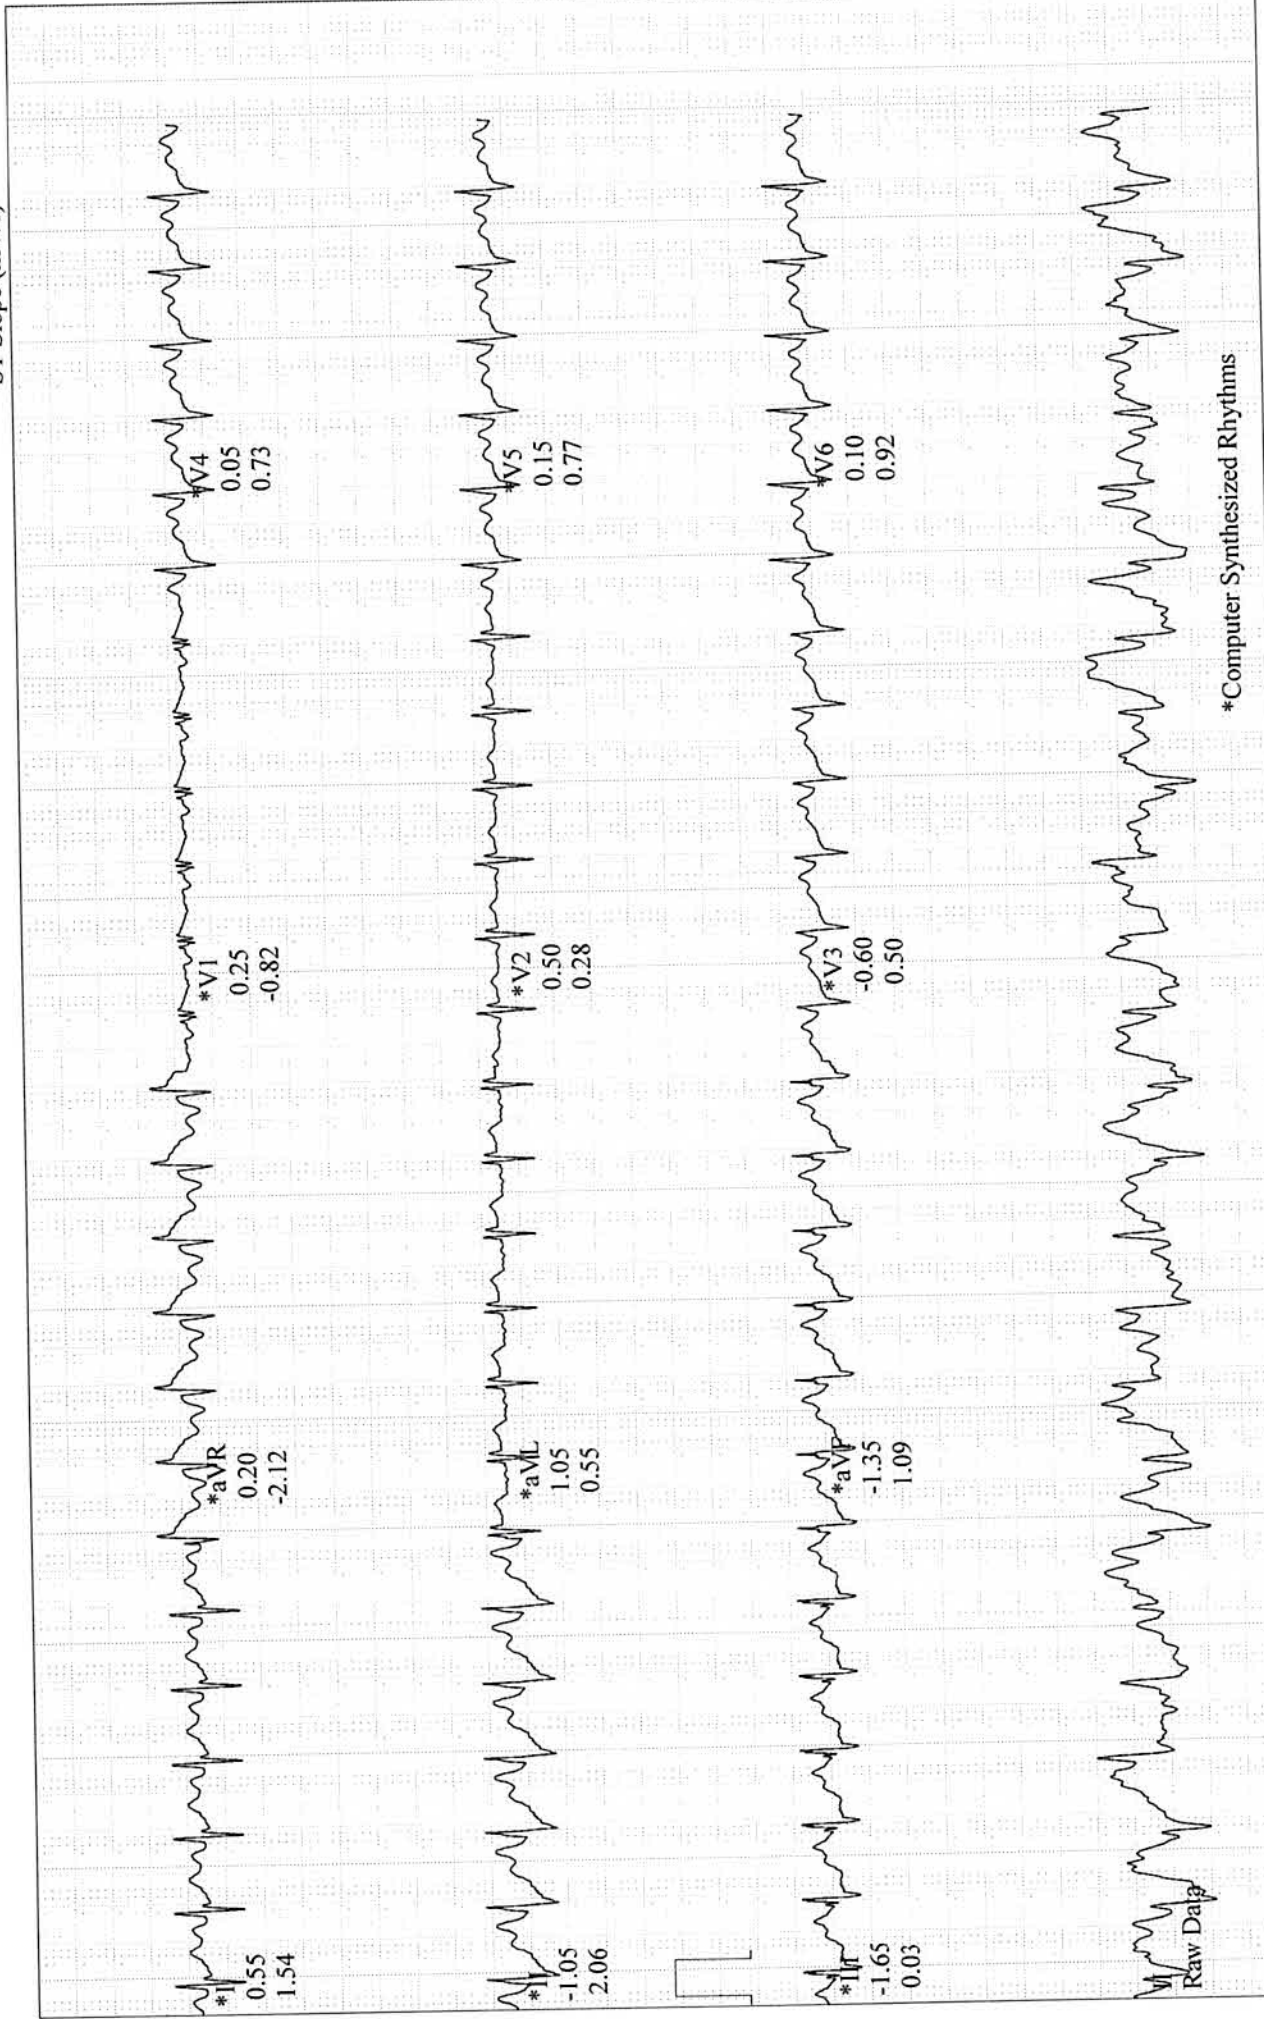 *I
0.55
1.54
*aVR
0.20
-2.12
*V1
0.25
-0.82
*V4
0.05
0.73
*II
-1.05
2.06
*aVL
1.05
0.55
*V2
0.50
0.28
*V5
0.15
0.77
*III
-1.65
0.03
*aVF
-1.35
1.09
*V3
-0.60
0.50
*V6
0.10
0.92
Raw Data
*Computer Synthesized Rhythms